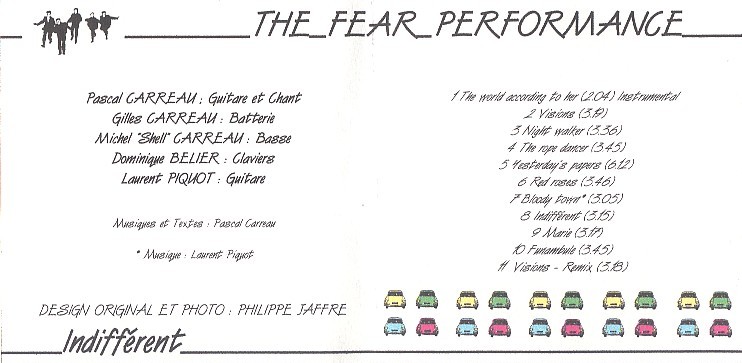 THE_FEAR_PERFORMANCE
Pascal CARREAU : Guitare et Chant
Gilles CARREAU : Batterie
Michel "Shell" CARREAU : Basse
Dominique BELIER : Claviers
Laurent PIQUOT : Guitare
Musiques et Textes : Pascal Carreau
* Musique : Laurent Piquot
DESIGN ORIGINAL ET PHOTO : PHILIPPE JAFFRE
Indifférent
1 The world according to her (2.04) Instrumental
2 Visions (3.19)
3 Night walker (3.36)
4 The rope dancer (3.45)
5 Yesterday's papers (6.12)
6 Red roses (3.46)
7 Bloody town* (3.05)
8 Indifférent (3.15)
9 Marie (3.17)
10 Funambule (3.45)
11 Visions - Remix (3.18)